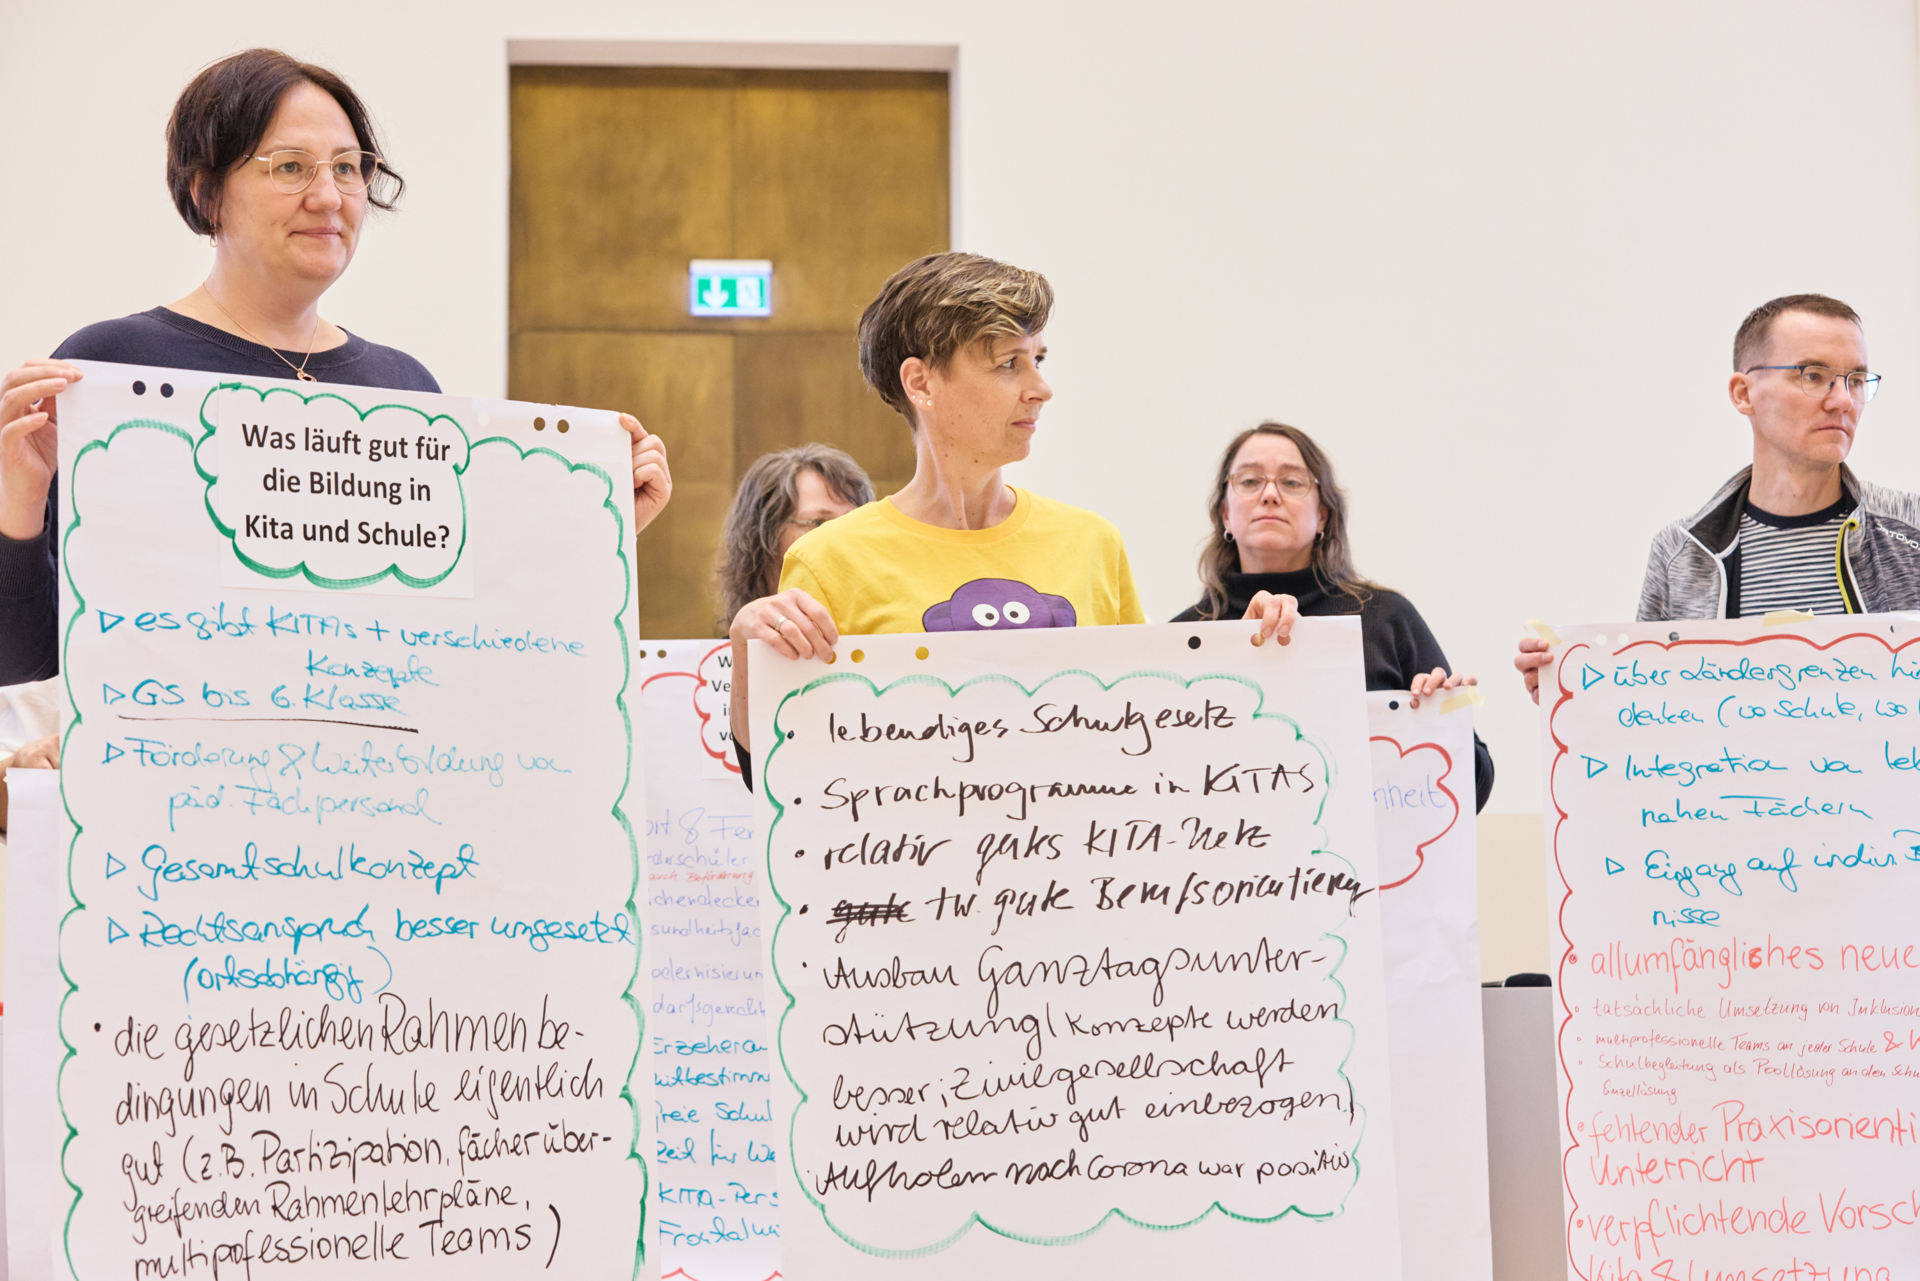 Was läuft gut für
die Bildung in
Kita und Schule?
▷ es gibt KITAs + verschiedene
Konzepte
▷ GS bis 6. Klasse
▷ Förderung & Weiterbildung von
päd. Fachpersonal
▷ Gesamtschulkonzept
▷ Rechtsanspruch besser umgesetzt
(ortsabhängig)
• die gesetzlichen Rahmenbe-
dingungen in Schule eigentlich
gut (z.B. Partizipation, fächerüber-
greifenden Rahmenlehrpläne,
multiprofessionelle Teams)
W
Ve
i
v
ort & Fer
derschüler
auch Beförderung
chendecke
sundheitsfac
odernisierun
darfsgerecht
Erzieher
mitbestimm
freie Schul
Zeit für We
KITA-Pers
Frontalun
• lebendiges Schulgesetz
• Sprachprogramme in KITAS
• relativ gutes KITA-Netz
• gute tw. gute Berufsorientierung
• Ausbau Ganztagsunter-
stützung/Konzepte werden
besser; Zivilgesellschaft
wird relativ gut einbezogen.
Aufholen nach Corona war positiv
nheit
▷ über Ländergrenzen hi
denken (wo Schule, wo
▷ Integration von leb
nahen Fächern
▷ Eingang auf indiv. B
nisse
• allumfängliches neue
• tatsächliche Umsetzung von Inklusion
• multiprofessionelle Teams an jeder Schule &
• Schulbegleitung als Poollösung an den Schu
Einzellösung
• fehlender Praxisorienti
Unterricht
• verpflichtende Vorsch
Kita & Umsetzung